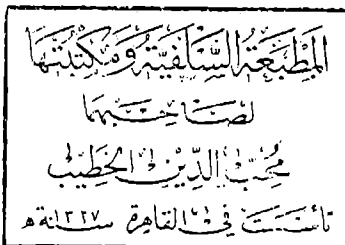 المطبعة السلفية ومكتبتها
لصاحبها
محب الدين الخطيب
تأسست في القاهرة سنة ١٣٢٧ ه